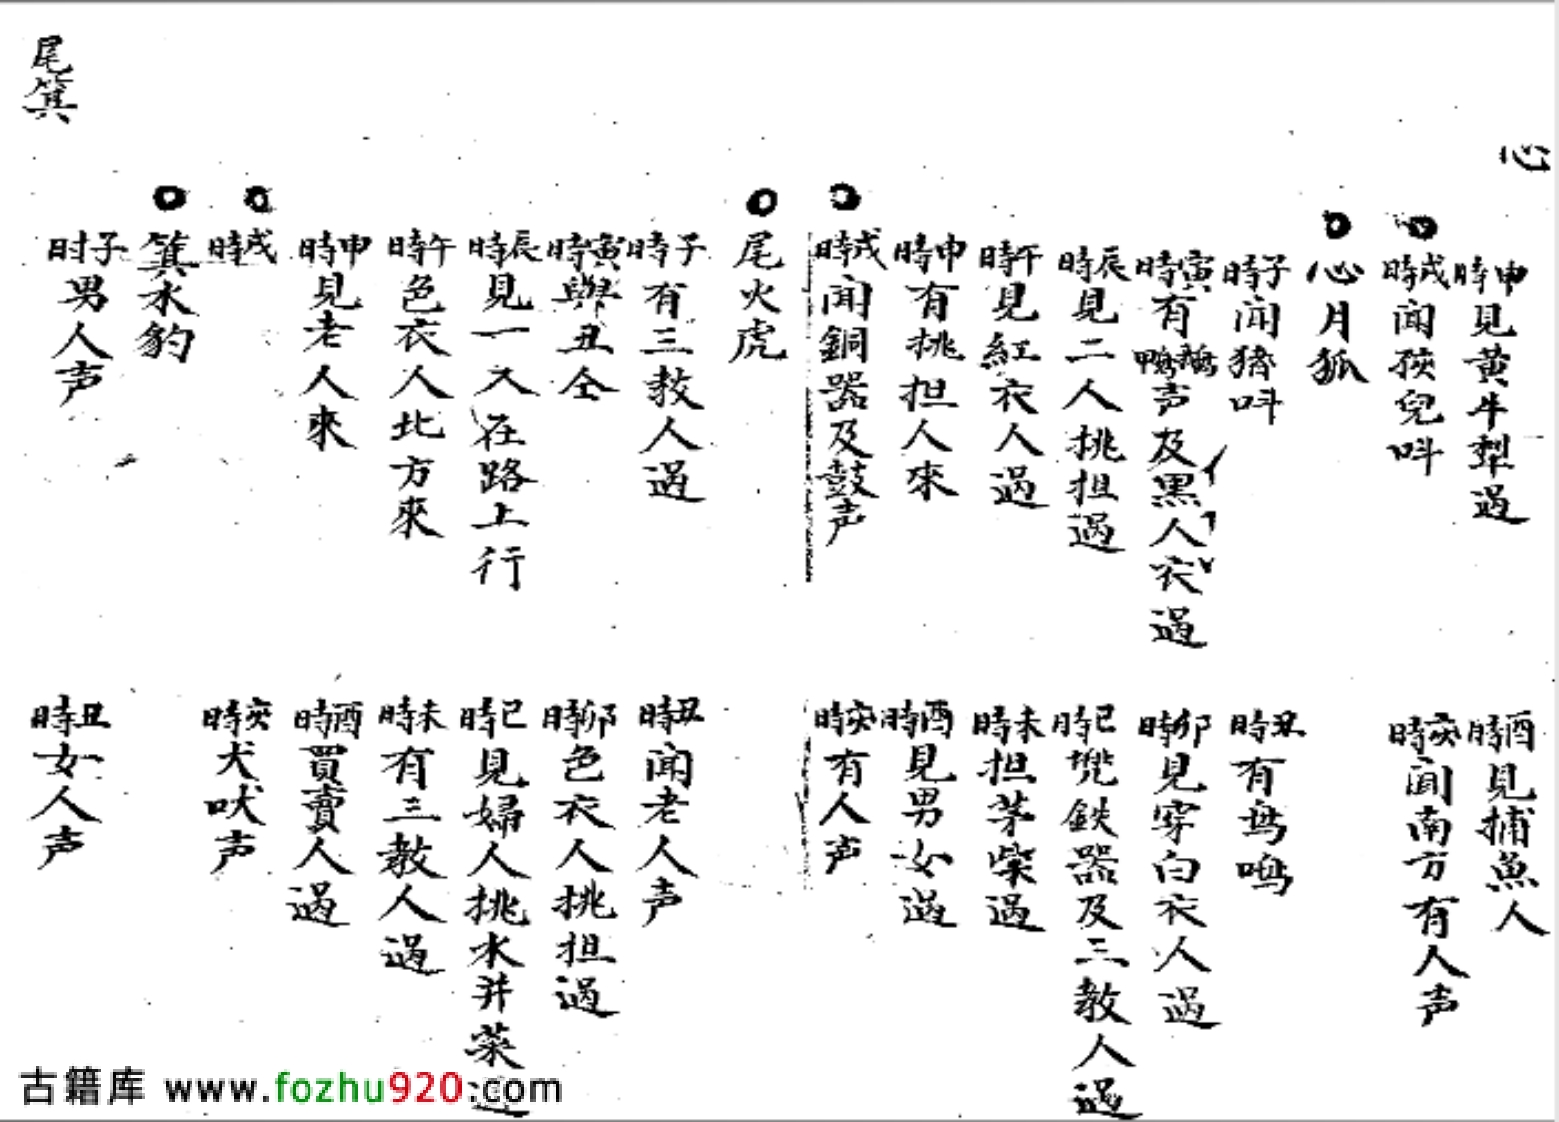 心
申時見黃牛犁過
酉時見捕魚人
戌時闻孩兒呌
亥時闻南方有人声
心月狐
子時闻猪呌
丑時有鸟鳴
寅時有鵝鴨声及黑人衣過
卯時見穿白衣人過
辰時見二人挑担過
巳時 鉄器及三教人過
午時見紅衣人過
未時担茅柴過
申時有挑担人來
酉時見男女過
戌時闻銅器及鼓声
亥時有人声
尾火虎
子時有三教人過
丑時闻老人声
寅時與丑仝
卯時色衣人挑担過
辰時見一人在路上行
巳時見婦人挑水并菜過
午時色衣人北方來
未時有三教人過
申時見老人來
酉時買賣人過
戌時
亥時犬吠声
箕水豹
子时男人声
丑時女人声
尾箕
古籍库 www.fozhu920.com